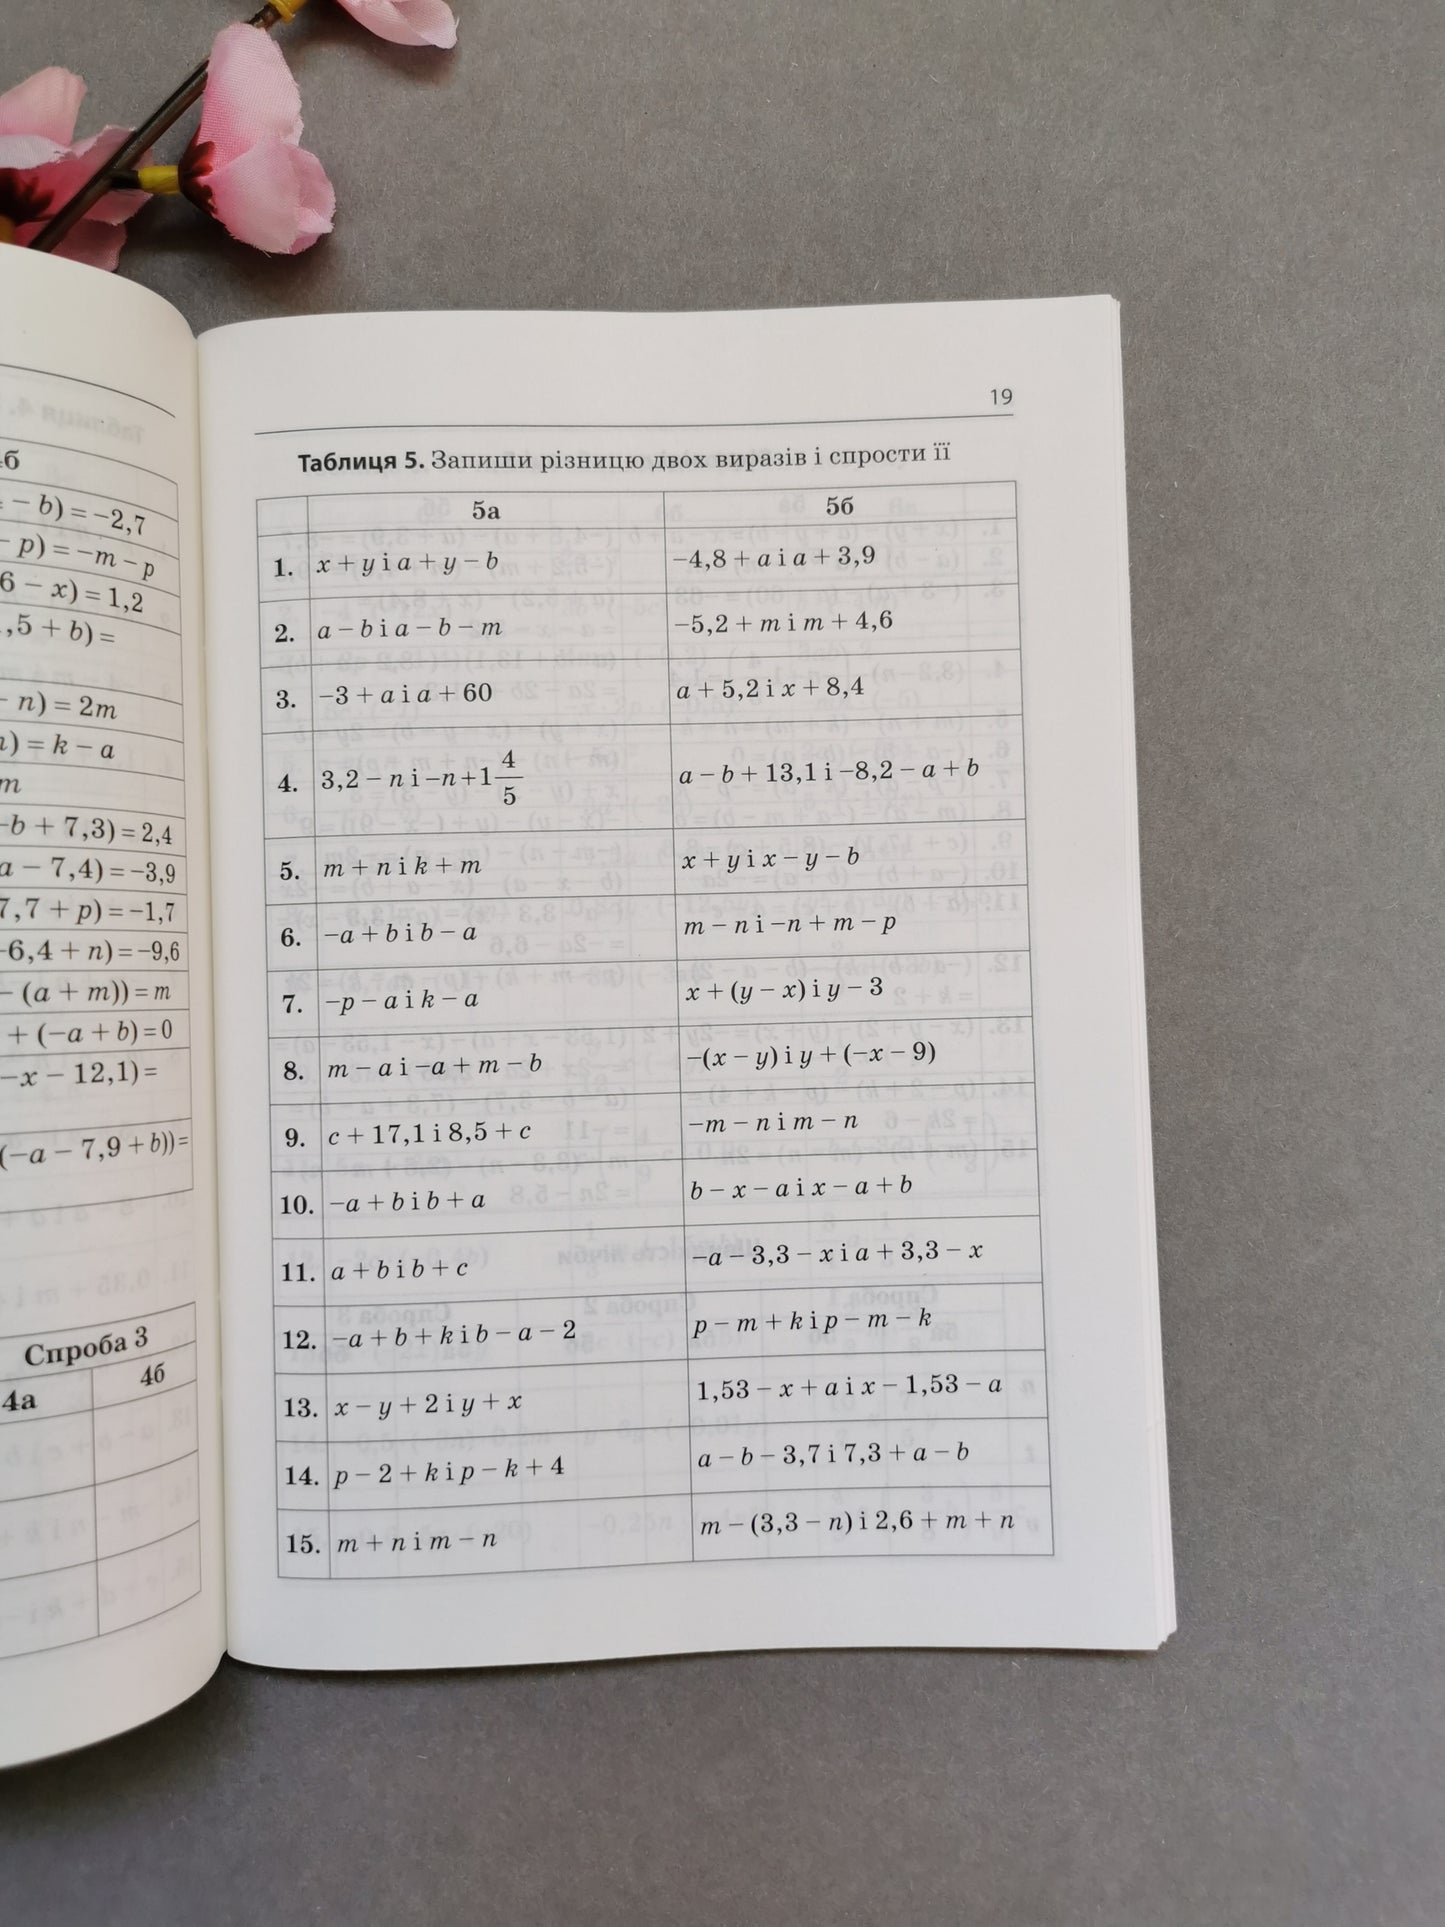 4б
– b) = –2,7
– p) = –m – p
6 – x) = 1,2
,5 + b) =
– n) = 2m
) = k – a
m
–b + 7,3) = 2,4
a – 7,4) = –3,9
7,7 + p) = –1,7
–6,4 + n) = –9,6
– (a + m)) = m
+ (–a + b) = 0
–x – 12,1) =
(–a – 7,9 + b)) =
Спроба 3
4а 4б
19
Таблиця 5. Запиши різницю двох виразів і спрости її
5а 5б
1. x + y і a + y – b –4,8 + a і a + 3,9
2. a – b і a – b – m –5,2 + m і m + 4,6
3. –3 + a і a + 60 a + 5,2 і x + 8,4
4. 3,2 – n і –n + 1 4/5 a – b + 13,1 і –8,2 – a + b
5. m + n і k + m x + y і x – y – b
6. –a + b і b – a m – n і –n + m – p
7. –p – a і k – a x + (y – x) і y – 3
8. m – a і –a + m – b –(x – y) і y + (–x – 9)
9. c + 17,1 і 8,5 + c –m – n і m – n
10. –a + b і b + a b – x – a і x – a + b
11. a + b і b + c –a – 3,3 – x і a + 3,3 – x
12. –a + b + k і b – a – 2 p – m + k і p – m – k
13. x – y + 2 і y + x 1,53 – x + a і x – 1,53 – a
14. p – 2 + k і p – k + 4 a – b – 3,7 і 7,3 + a – b
15. m + n і m – n m – (3,3 – n) і 2,6 + m + n